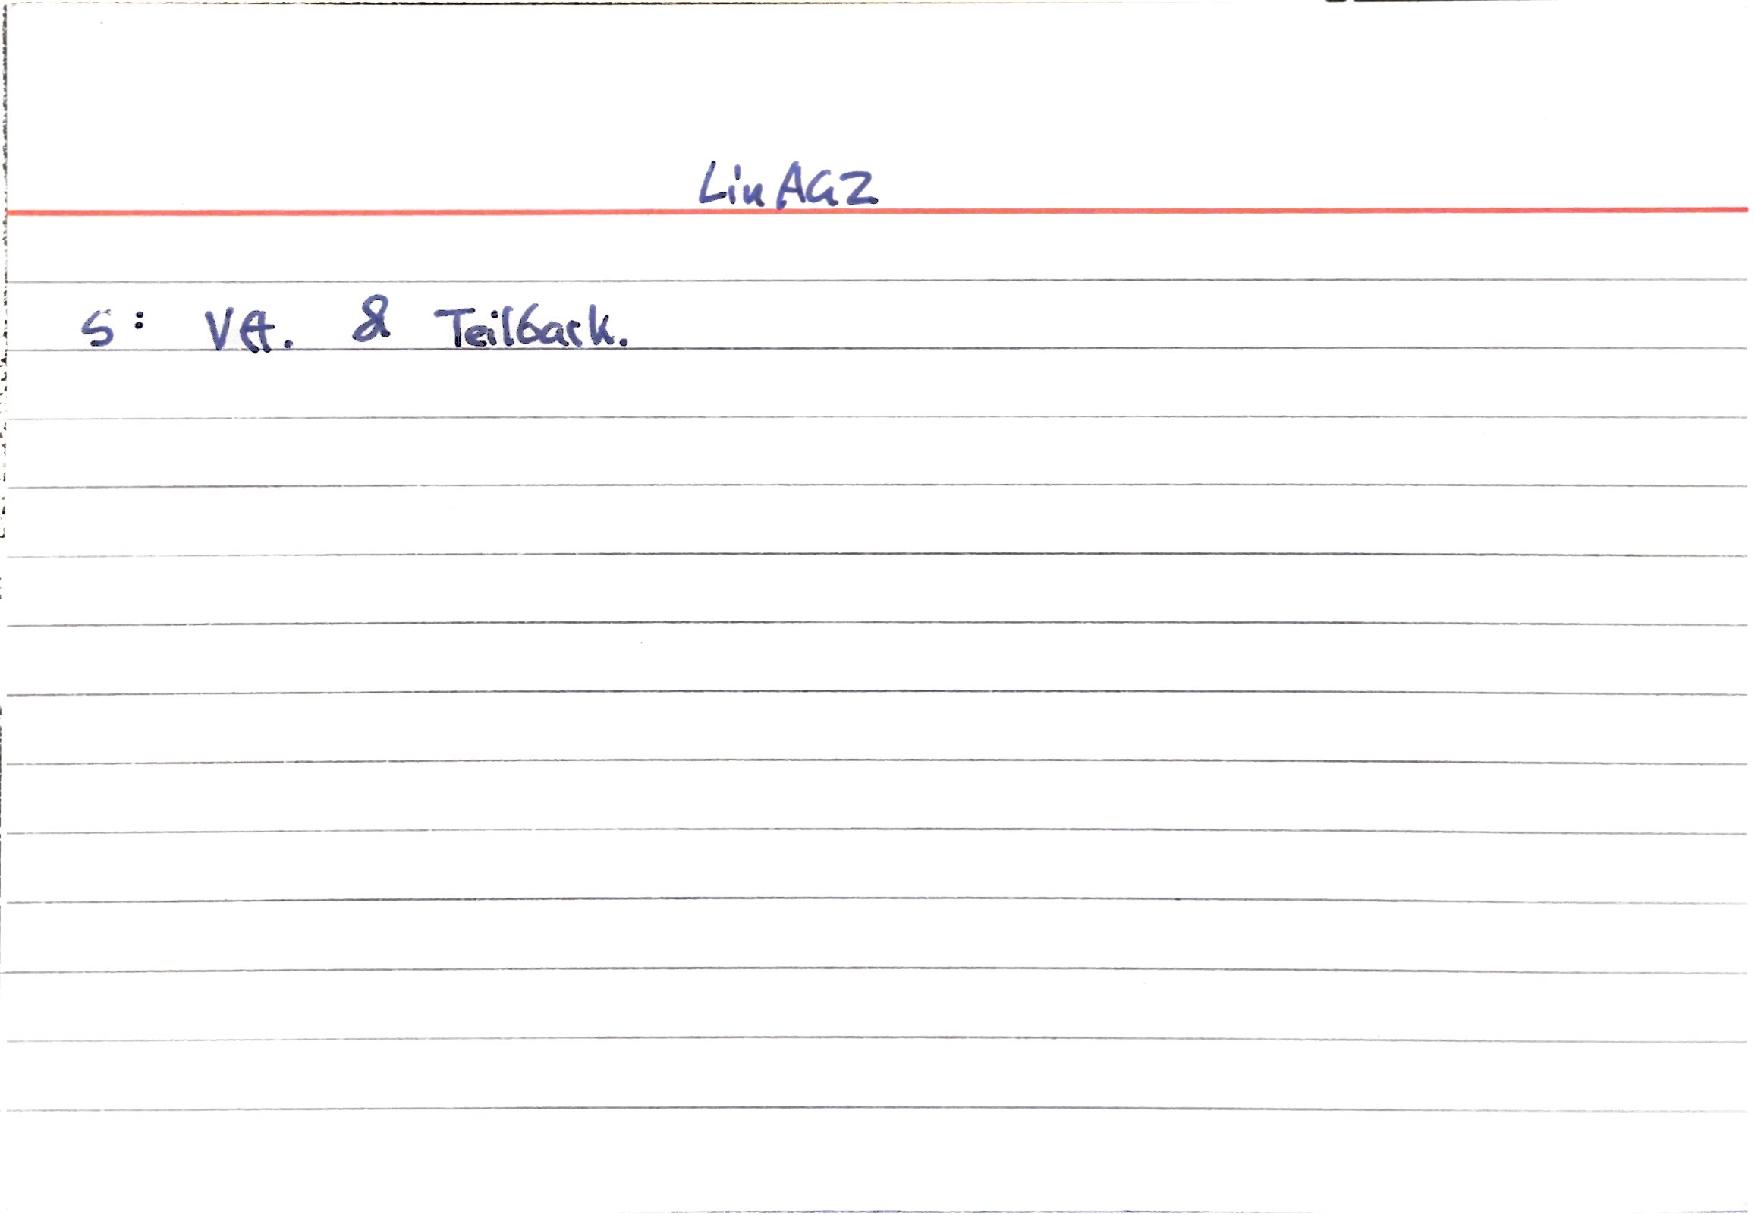 LinAG2
S: & Teilbark.